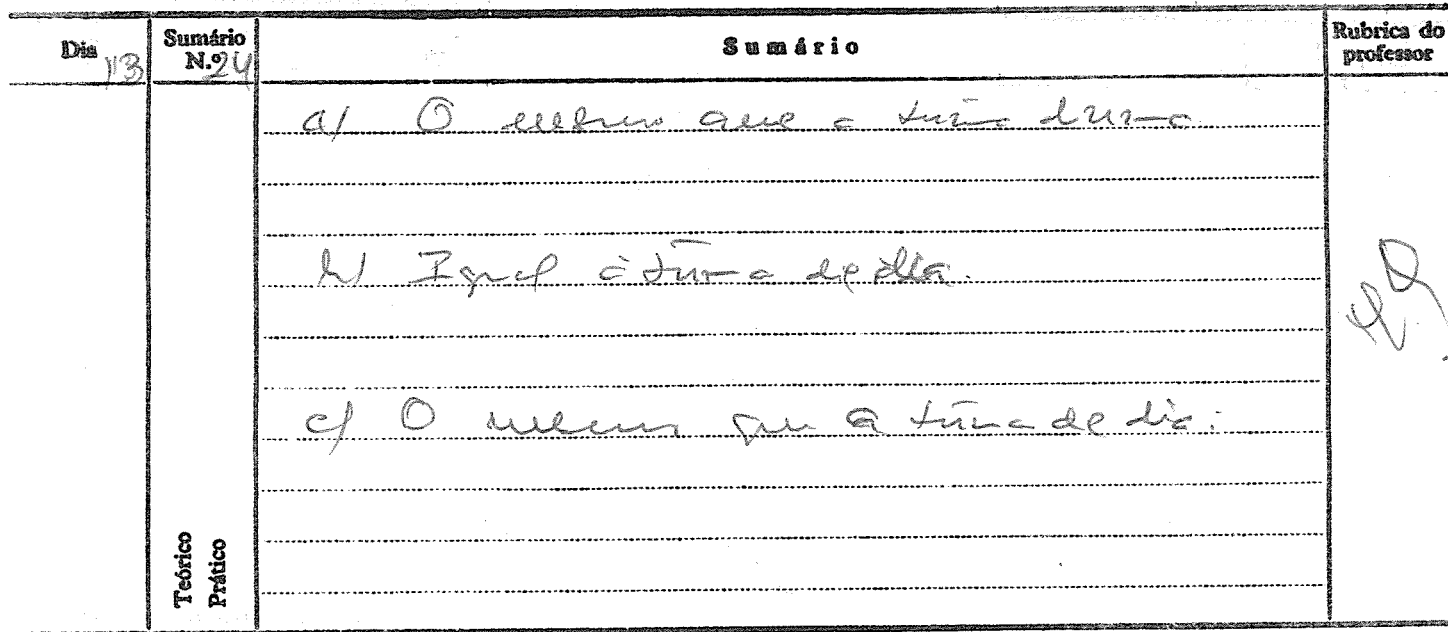 Dia 13
Sumário N.º 24
Sumário
Rubrica do professor
a) O mesmo que a turma diurna
b) Igual à turma de dia.
c) O mesmo que a turma de dia.
Teórico
Prático